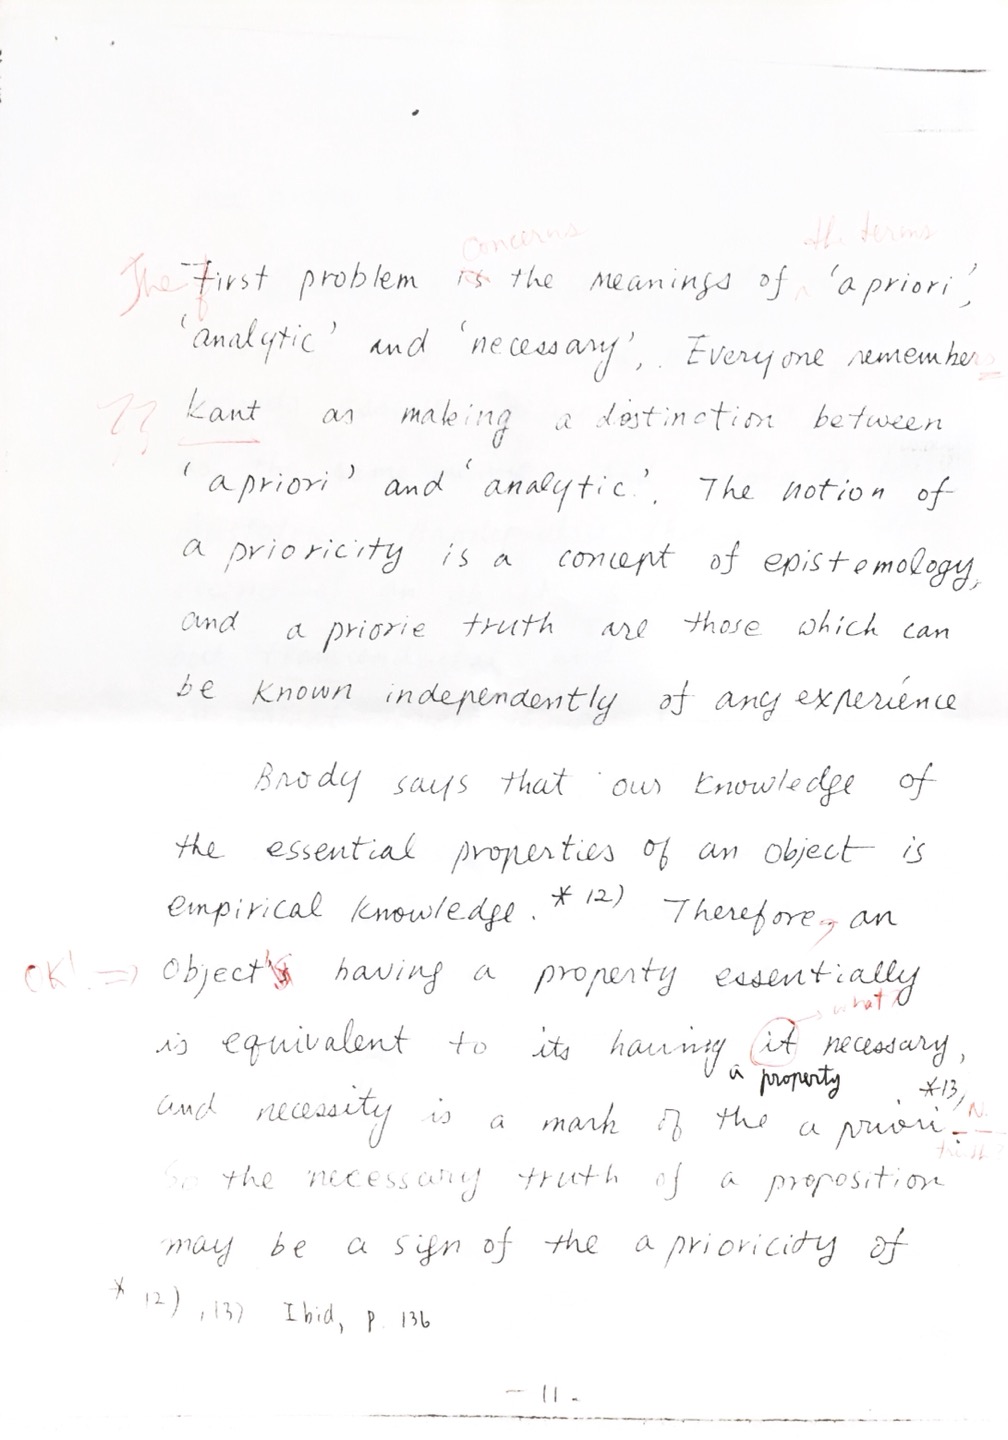 concerns the terms
The First problem is the meanings of 'a priori',
'analytic' and 'necessary'. Everyone remembers
?? Kant as making a distinction between
'a priori' and 'analytic'. The notion of
a prioricity is a concept of epistemology,
and a priorie truth are those which can
be known independently of any experience
Brody says that our knowledge of
the essential properties of an object is
empirical knowledge. *12) Therefore, an
⇒ Object's having a property essentially
what?
is equivalent to its having it necessary,
a property *13)
and necessity is a mark of the a priori.
So the necessary truth of a proposition
may be a sign of the a prioricity of
* 12), 13) Ibid, p. 136
- 11 -